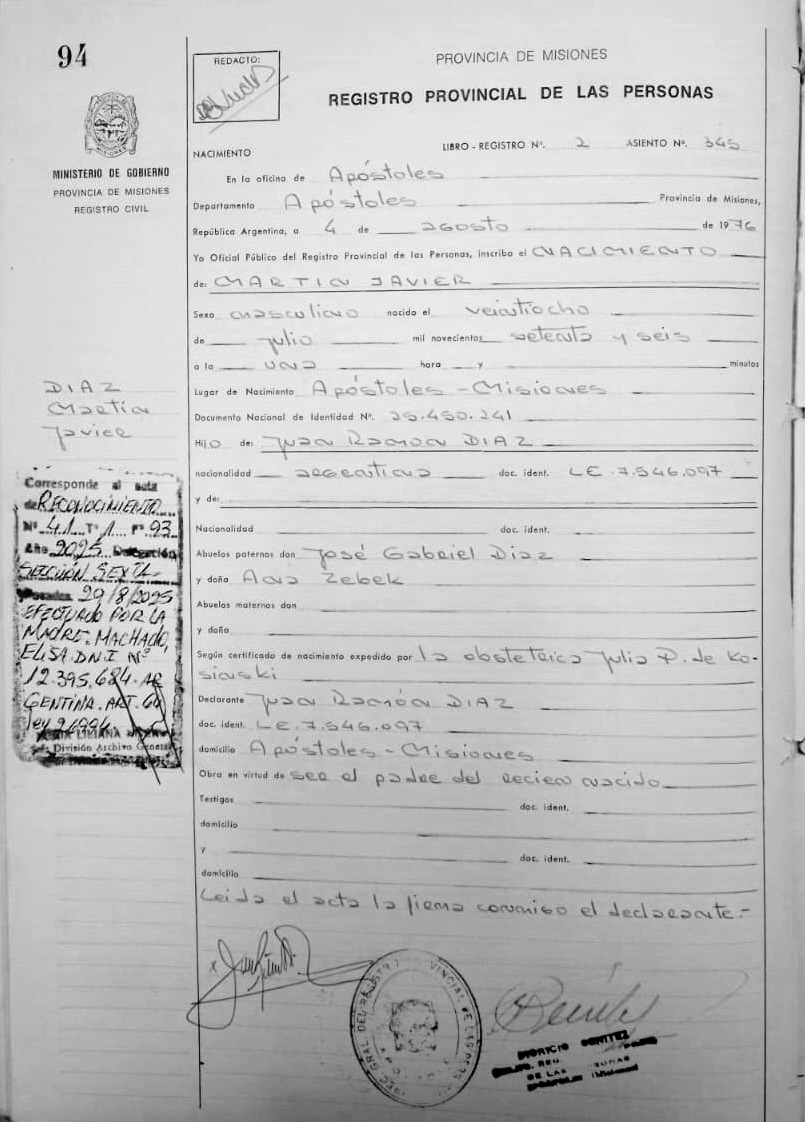 94
MINISTERIO DE GOBIERNO
PROVINCIA DE MISIONES
REGISTRO CIVIL
DIAZ
Martín
Javier
Corresponde al acta
de RECONOCIMIENTO
Nº 41 Tº 1 Fº 93
Año 2025 Delegación
SECCIÓN SEXTA
Posadas 29/8/2025
EFECTUADO POR LA
MADRE. MACHADO,
ELISA DNI Nº
12.395.684. AR
GENTINA. ART.
Ley 26994.
LILIANA
División Archivo General
REDACTO:
PROVINCIA DE MISIONES
REGISTRO PROVINCIAL DE LAS PERSONAS
NACIMIENTO LIBRO - REGISTRO Nº. 2 ASIENTO Nº. 345
En la oficina de Apóstoles
Departamento Apóstoles Provincia de Misiones,
República Argentina, a 4 de agosto de 1976
Yo Oficial Público del Registro Provincial de las Personas, inscribo el NACIMIENTO
de: MARTIN JAVIER
Sexo masculino nacido el veintiocho
de julio mil novecientos setenta y seis
a la una hora y minutos
Lugar de Nacimiento Apóstoles - Misiones
Documento Nacional de Identidad Nº. 25.450.241
Hijo de: Juan Ramón DIAZ
nacionalidad argentina doc. ident. LE 7.546.097
y de:
Nacionalidad doc. ident.
Abuelos paternos don José Gabriel Diaz
y doña Ana Zebek
Abuelos maternos don
y doña
Según certificado de nacimiento expedido por la obstetrica Julia P. de Ko-
sinski
Declarante Juan Ramón DIAZ
doc. ident. LE.7.546.097
domicilio Apóstoles - Misiones
Obra en virtud de ser el padre del recien nacido
Testigos doc. ident.
domicilio
y doc. ident.
domicilio
Leida el acta la firma conmigo el declarante.-
BENITEZ
DE LAS PERSONAS